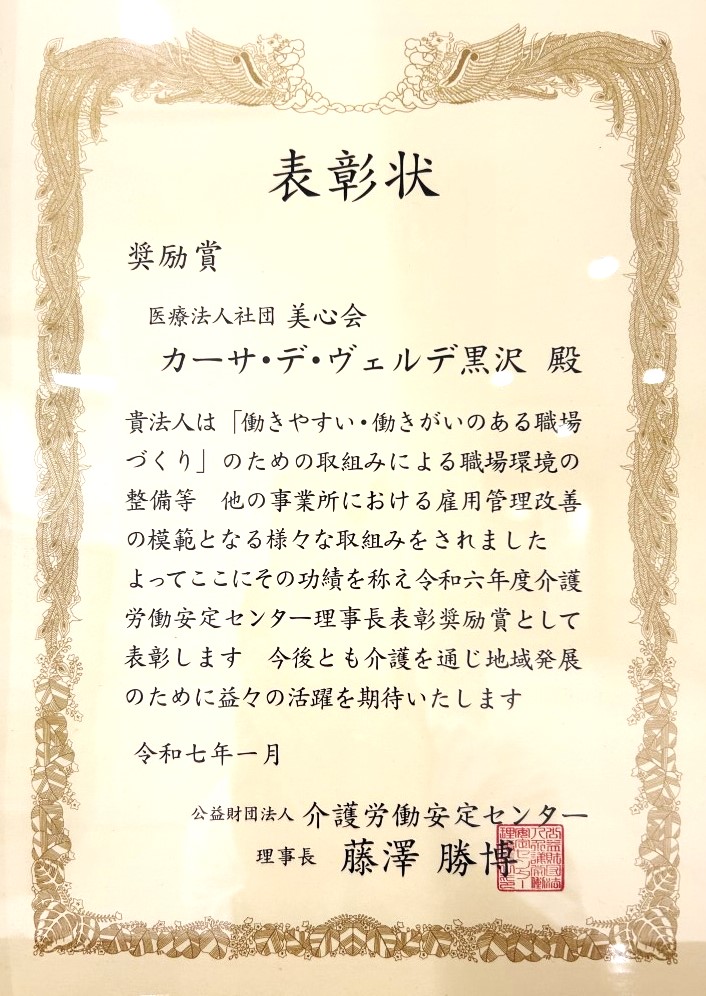 表彰状
奨励賞
医療法人社団 美心会
カーサ・デ・ヴェルデ黒沢 殿
貴法人は「働きやすい・働きがいのある職場
づくり」のための取組みによる職場環境の
整備等　他の事業所における雇用管理改善
の模範となる様々な取組みをされました
よってここにその功績を称え令和六年度介護
労働安定センター理事長表彰奨励賞として
表彰します　今後とも介護を通じ地域発展
のために益々の活躍を期待いたします
令和七年一月
公益財団法人 介護労働安定センター
理事長 藤澤 勝博